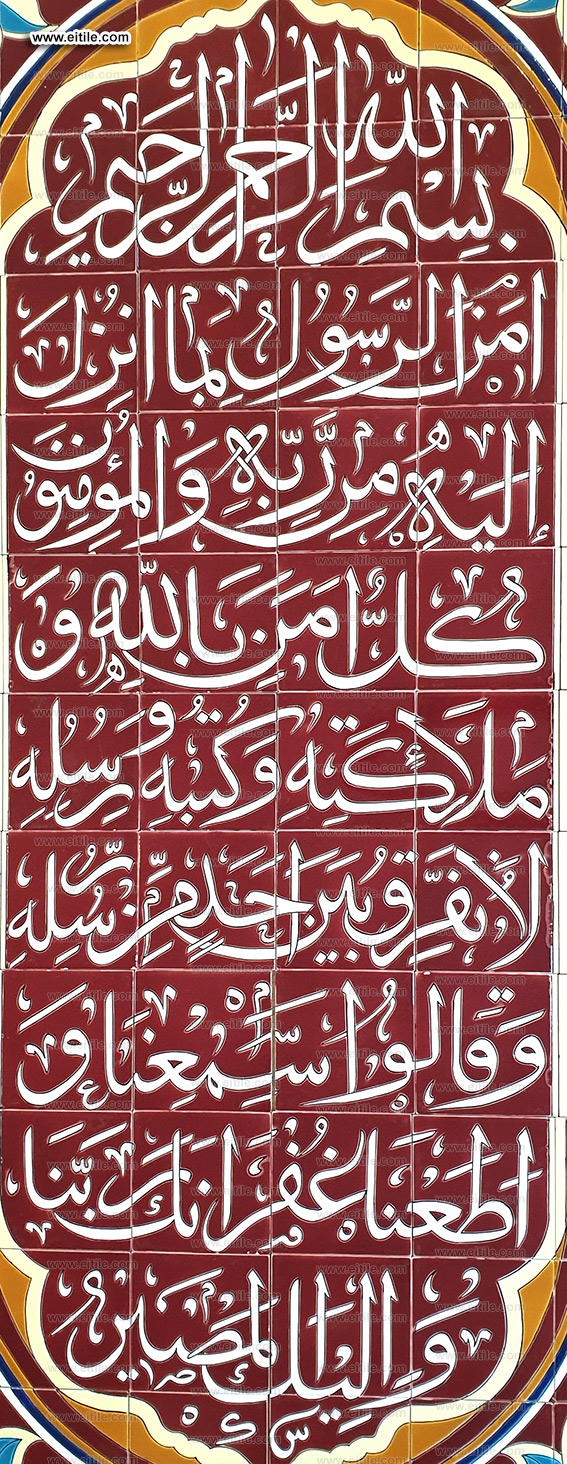 www.eitile.com
بسم الله الرحمن الرحيم
امن الرسول بما انزل
إليه من ربه والمؤمنون
كل امن بالله و
ملائكته وكتبه ورسله
لا نفرق بين احد من رسله
وقالوا سمعنا و
اطعنا غفرانك ربنا
واليك المصير